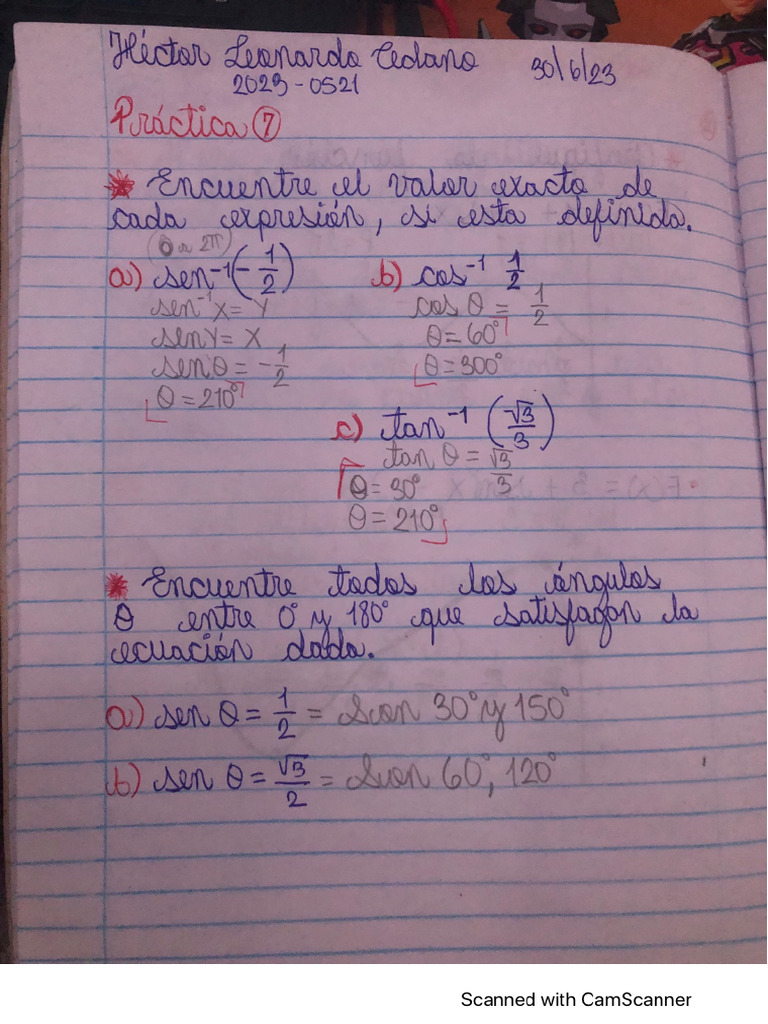 Héctor Leonardo Cedano 30/6/23
2023-0521
Práctica ⑦
* Encuentre el valor exacto de
cada expresión, si esta definida.
(0 a 2π)
a) sen⁻¹(-1/2) b) cos⁻¹ 1/2
sen⁻¹X = Y cos θ = 1/2
senY = X θ = 60°
senθ = -1/2 θ = 300°
θ = 210°
c) tan⁻¹ (√3/3)
tan θ = √3/3
θ = 30°
θ = 210°
* Encuentre todos los ángulos
θ entre 0° y 180° que satisfagan la
ecuación dada.
a) sen θ = 1/2 = Son 30° y 150°
b) sen θ = √3/2 = Son 60°, 120°
Scanned with CamScanner